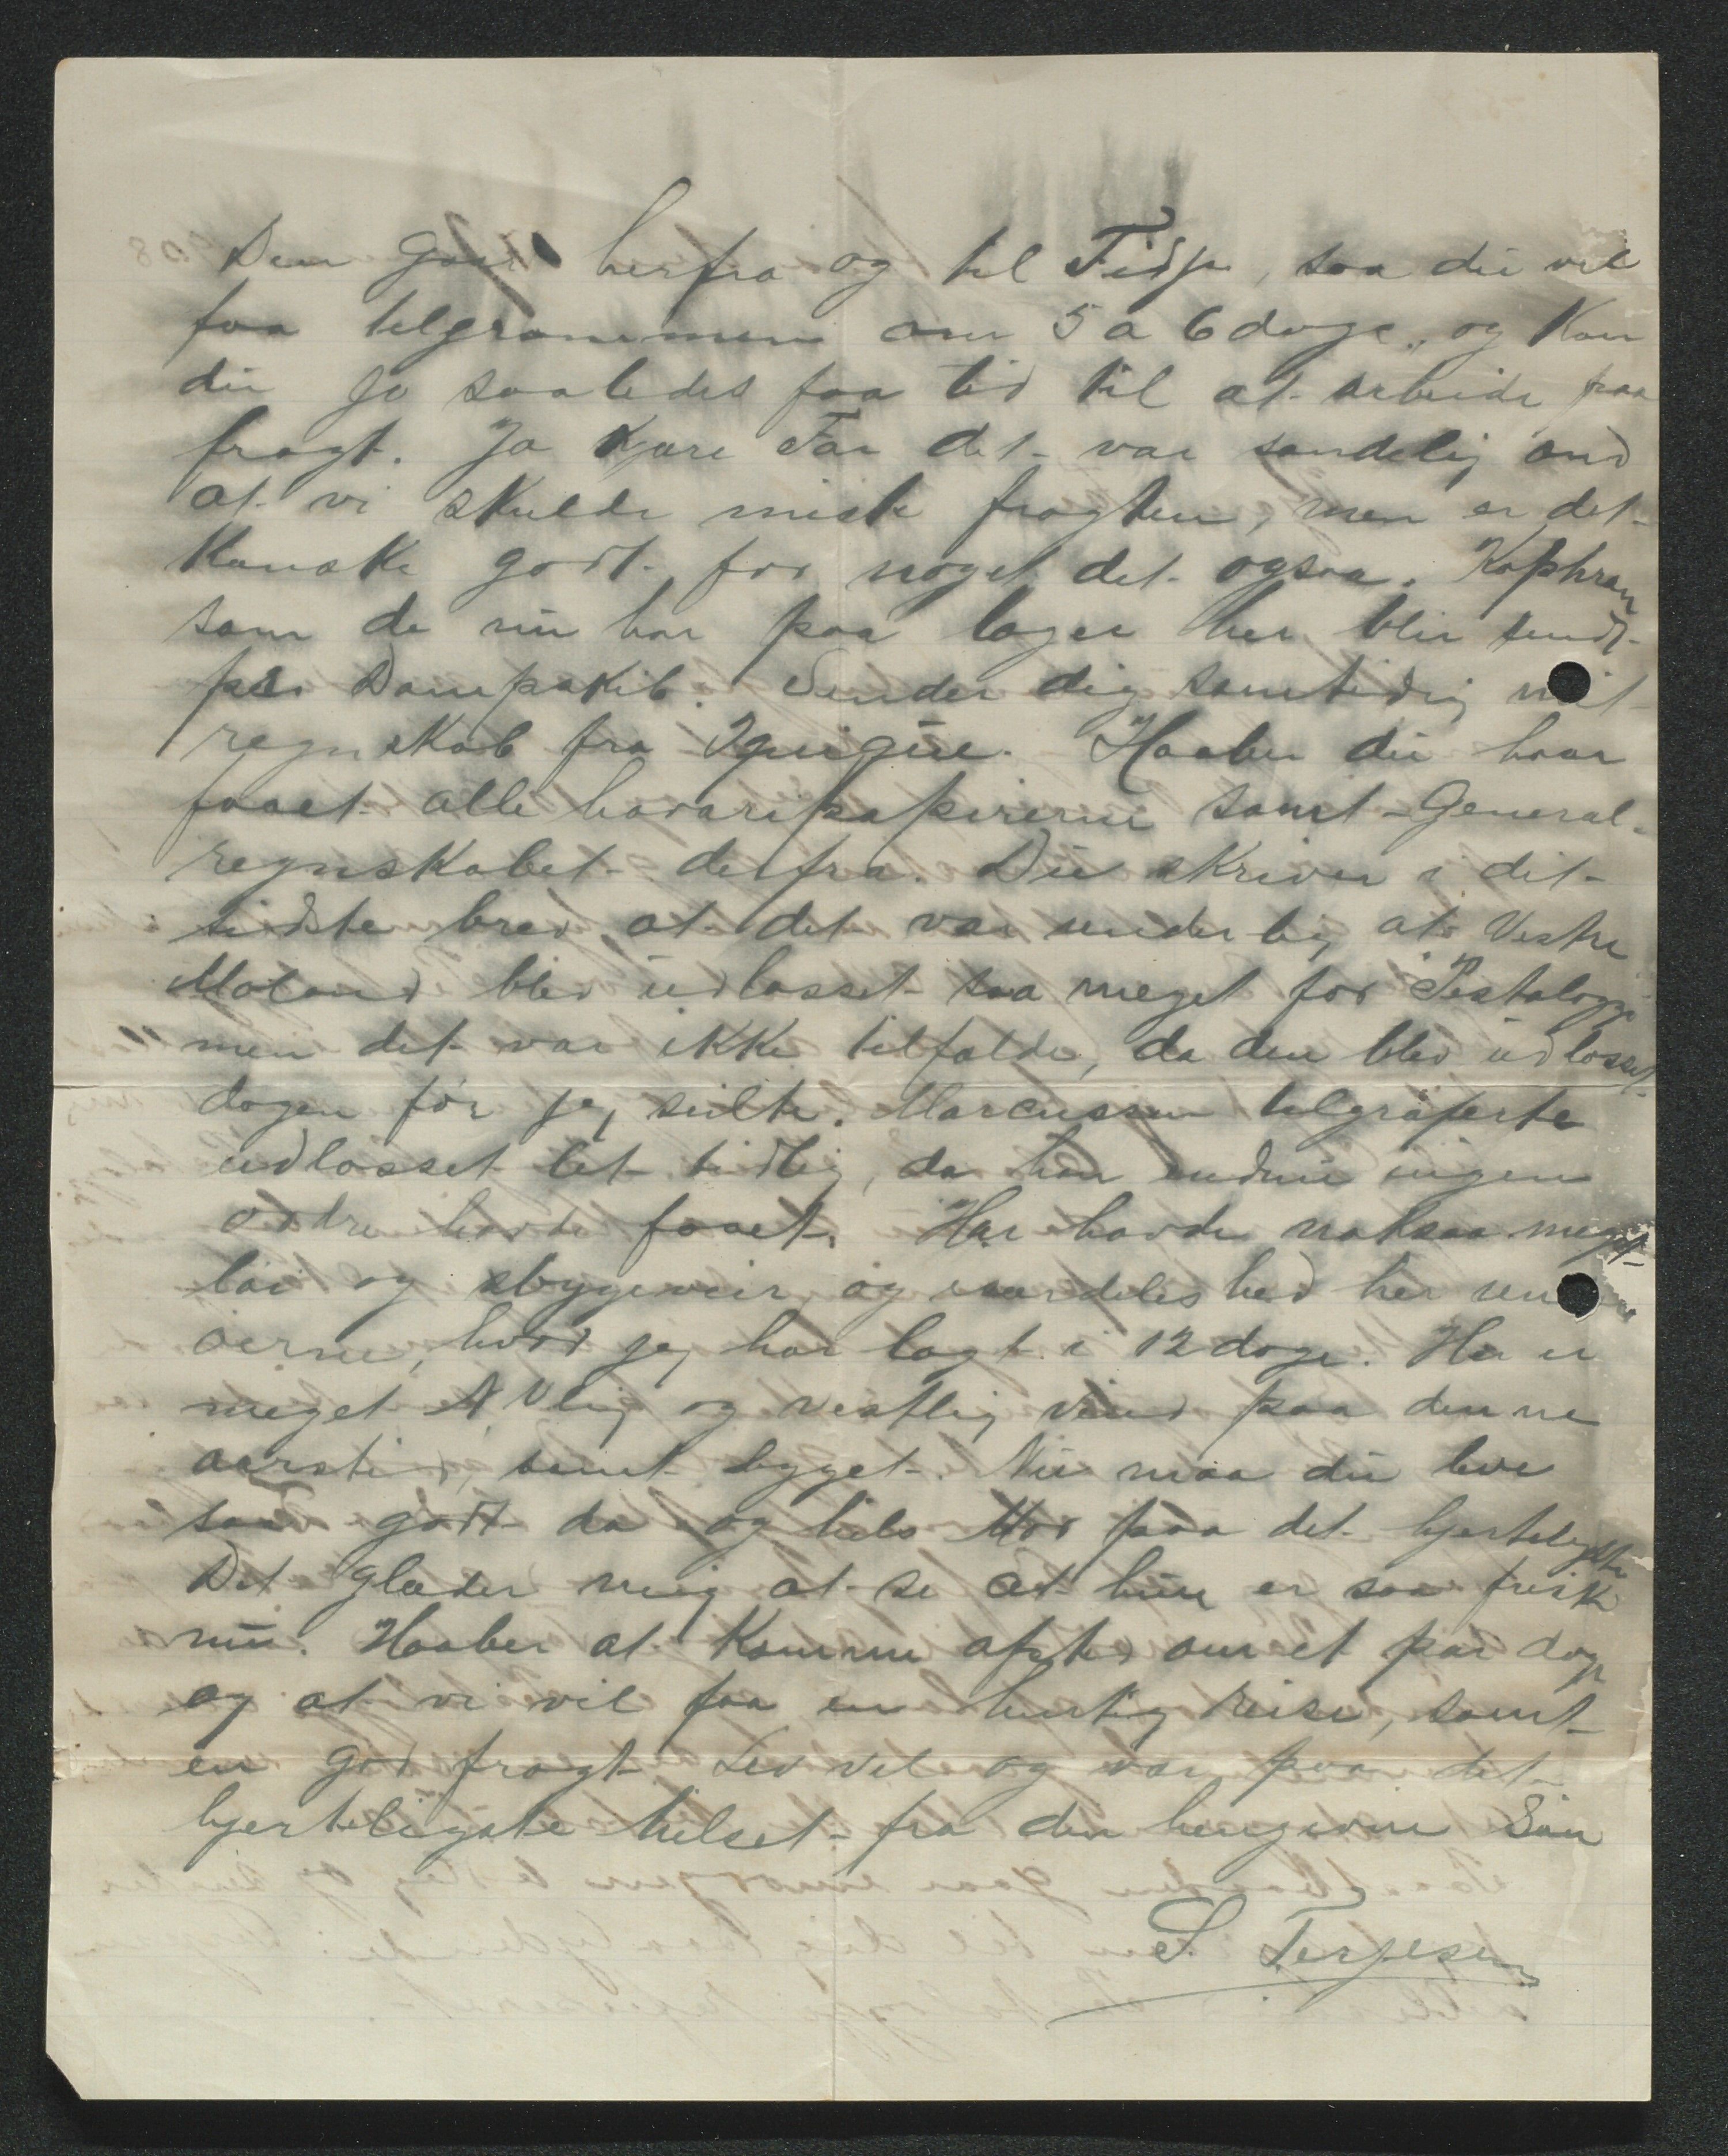 Den gaar herfra og til Fidji, saa du vil
faa telgrammen om 5 a 6 dage, og kan
du jo saaledes faa tid til at arbeide paa
fragt. Ja kjære Far det var sandelig ond
at vi skulde miste fragten, men er det
kanske godt for noget det ogsaa. Kophraen
som de nu har paa lager her blir sendt
per Dampskib. Sender dig samtidig mit
regnskab fra Iquique. Haaber du har
faaet alle havaripapirerne samt General-
regnskabet derfra. Du skriver i dit
sidste brev at det var underlig at Vestre
Moland blev udlosset saa meget før Pestalozzi
men det var ikke tilfælde, da den blev udlosset
dagen før jeg seilte. Marcussen telgraferte
udlosset let tidlig, da han endnu ingen
ordre havde faaet. Har havde noksaa meget
lai og bygeveir, og særdeles hed her
øerne, hvor jeg har lagt i 12 dage. Her er
meget NVlig og vestlig vind paa denne
aarstid, samt bygget. Nu maa du leve
saa godt da og hils Mor paa det hjerteligste
Det glæder mig at se at hun er saa frisk
nu. Haaber at komme afsted om et par dage
og at vi vil faa en hurtig reise, samt
en god fragt. Lev vel og vær paa det
hjerteligste hilset fra din hengivne Søn
S. Terjesen